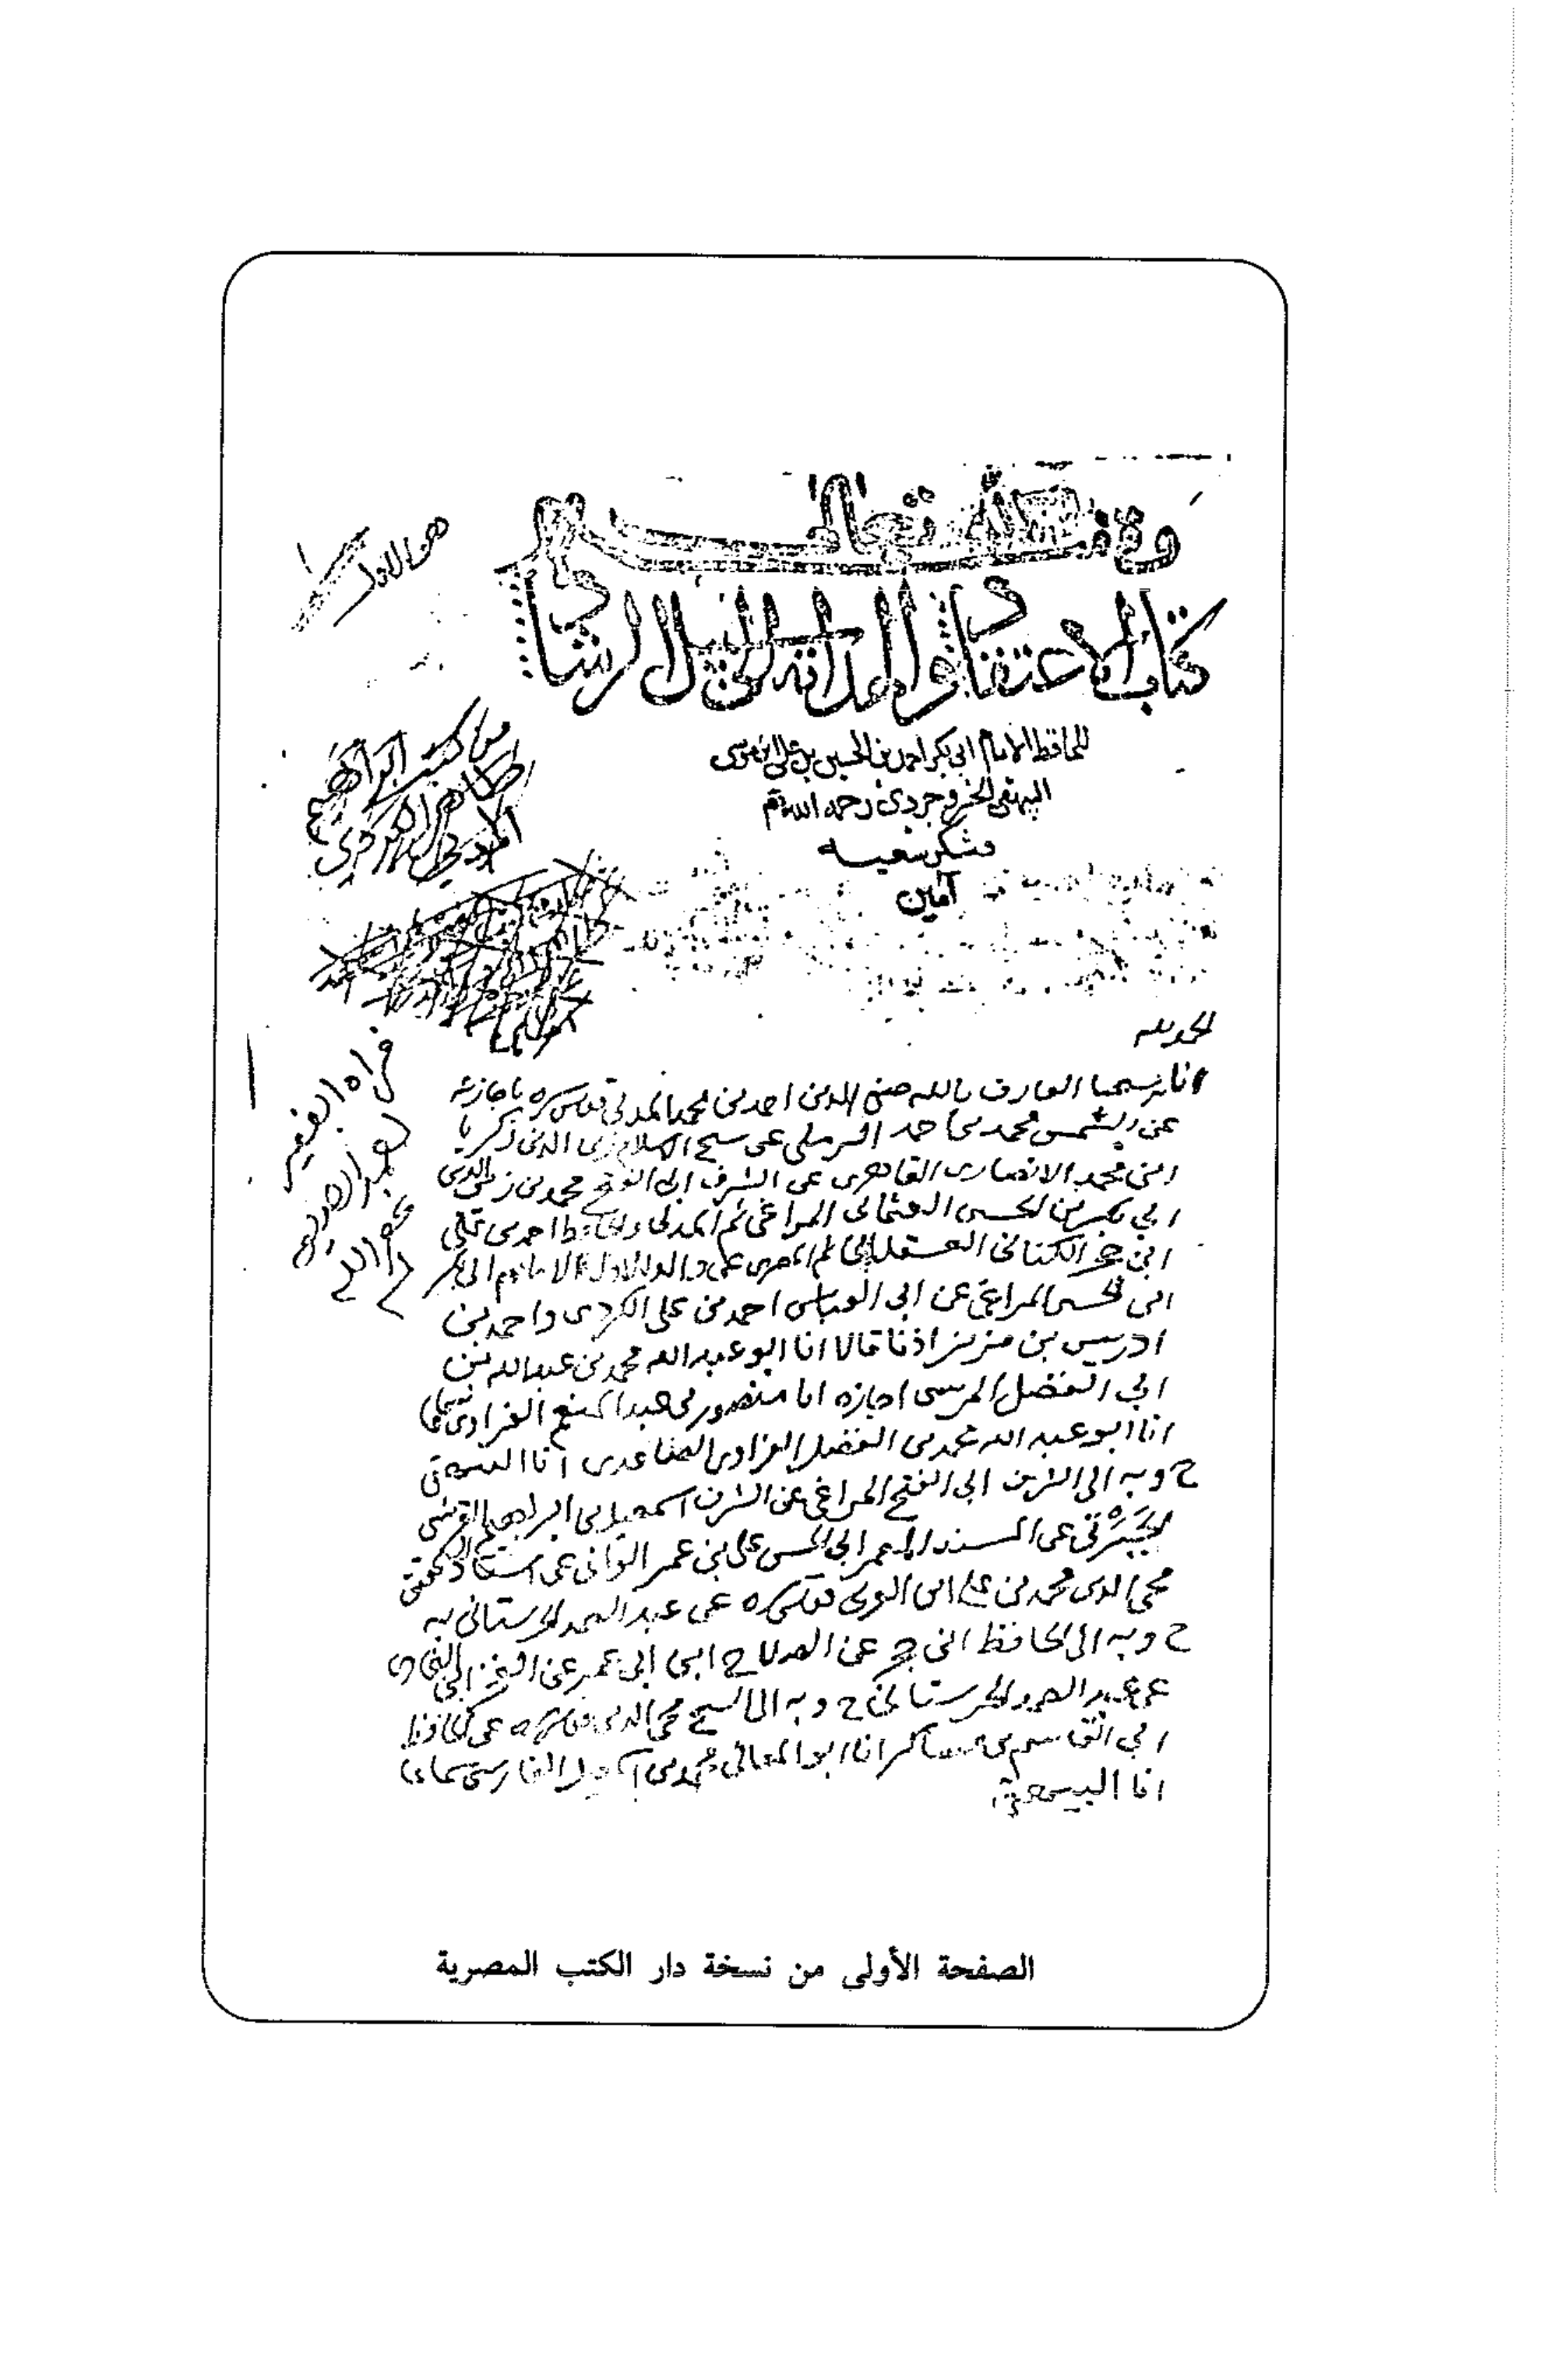 وقف لله تعالى
كتاب الاعتقاد والهداية الى سبيل الرشاد
للحافظ الامام ابي بكر احمد بن الحسين بن علي بن موسى
البيهقي الخسروجردي رحمه الله تع
وشكر سعيه
آمين
من كتب ابراهيم
الحمد لله
انا شيخنا العارف بالله صفي الدين احمد بن محمد المدني قدس سره باجازته
عن الشمس محمد بن احمد الرملي عن شيخ الاسلام زين الدين زكريا
ابن محمد الانصاري القاهري عن الشرف ابي الفتح محمد بن زين الدين
ابي بكر بن الحسين العثماني المراغي ثم المدني والحافظ احمد بن علي
ابن حجر الكناني العسقلاني ثم المصري عن والد الاول الامام ابي بكر
ابن الحسين المراغي عن ابي العباس احمد بن علي الكردي واحمد بن
ادريس بن مزيز اذنا قالا انا ابو عبد الله محمد بن عبد الله بن
ابي الفضل المرسي اجازه انا منصور بن عبد المنعم الفراوي سماعا
انا ابو عبد الله محمد بن الفضل الفراوي الصاعدي انا البيهقي
ح وبه الى الشرف ابي الفتح المراغي عن الشرف اسمعيل بن ابراهيم القرشي
الجبرتي عن المسند المعمر ابي الحسن علي بن عمر الواني عن
محي الدين محمد بن علي ابن العربي قدس سره عن عبد الصمد الحرستاني به
ح وبه الى الحافظ ابن حجر عن الصلاح ابن ابي عمر عن الفخر ابن البخاري
عن عبد الصمد الحرستاني ح وبه الى الشيخ محي الدين قدس سره عن الحافظ
ابي القاسم بن عساكر انا ابو المعالي محمد بن اسمعيل الفارسي سماعا
انا البيهقي
الصفحة الأولى من نسخة دار الكتب المصرية